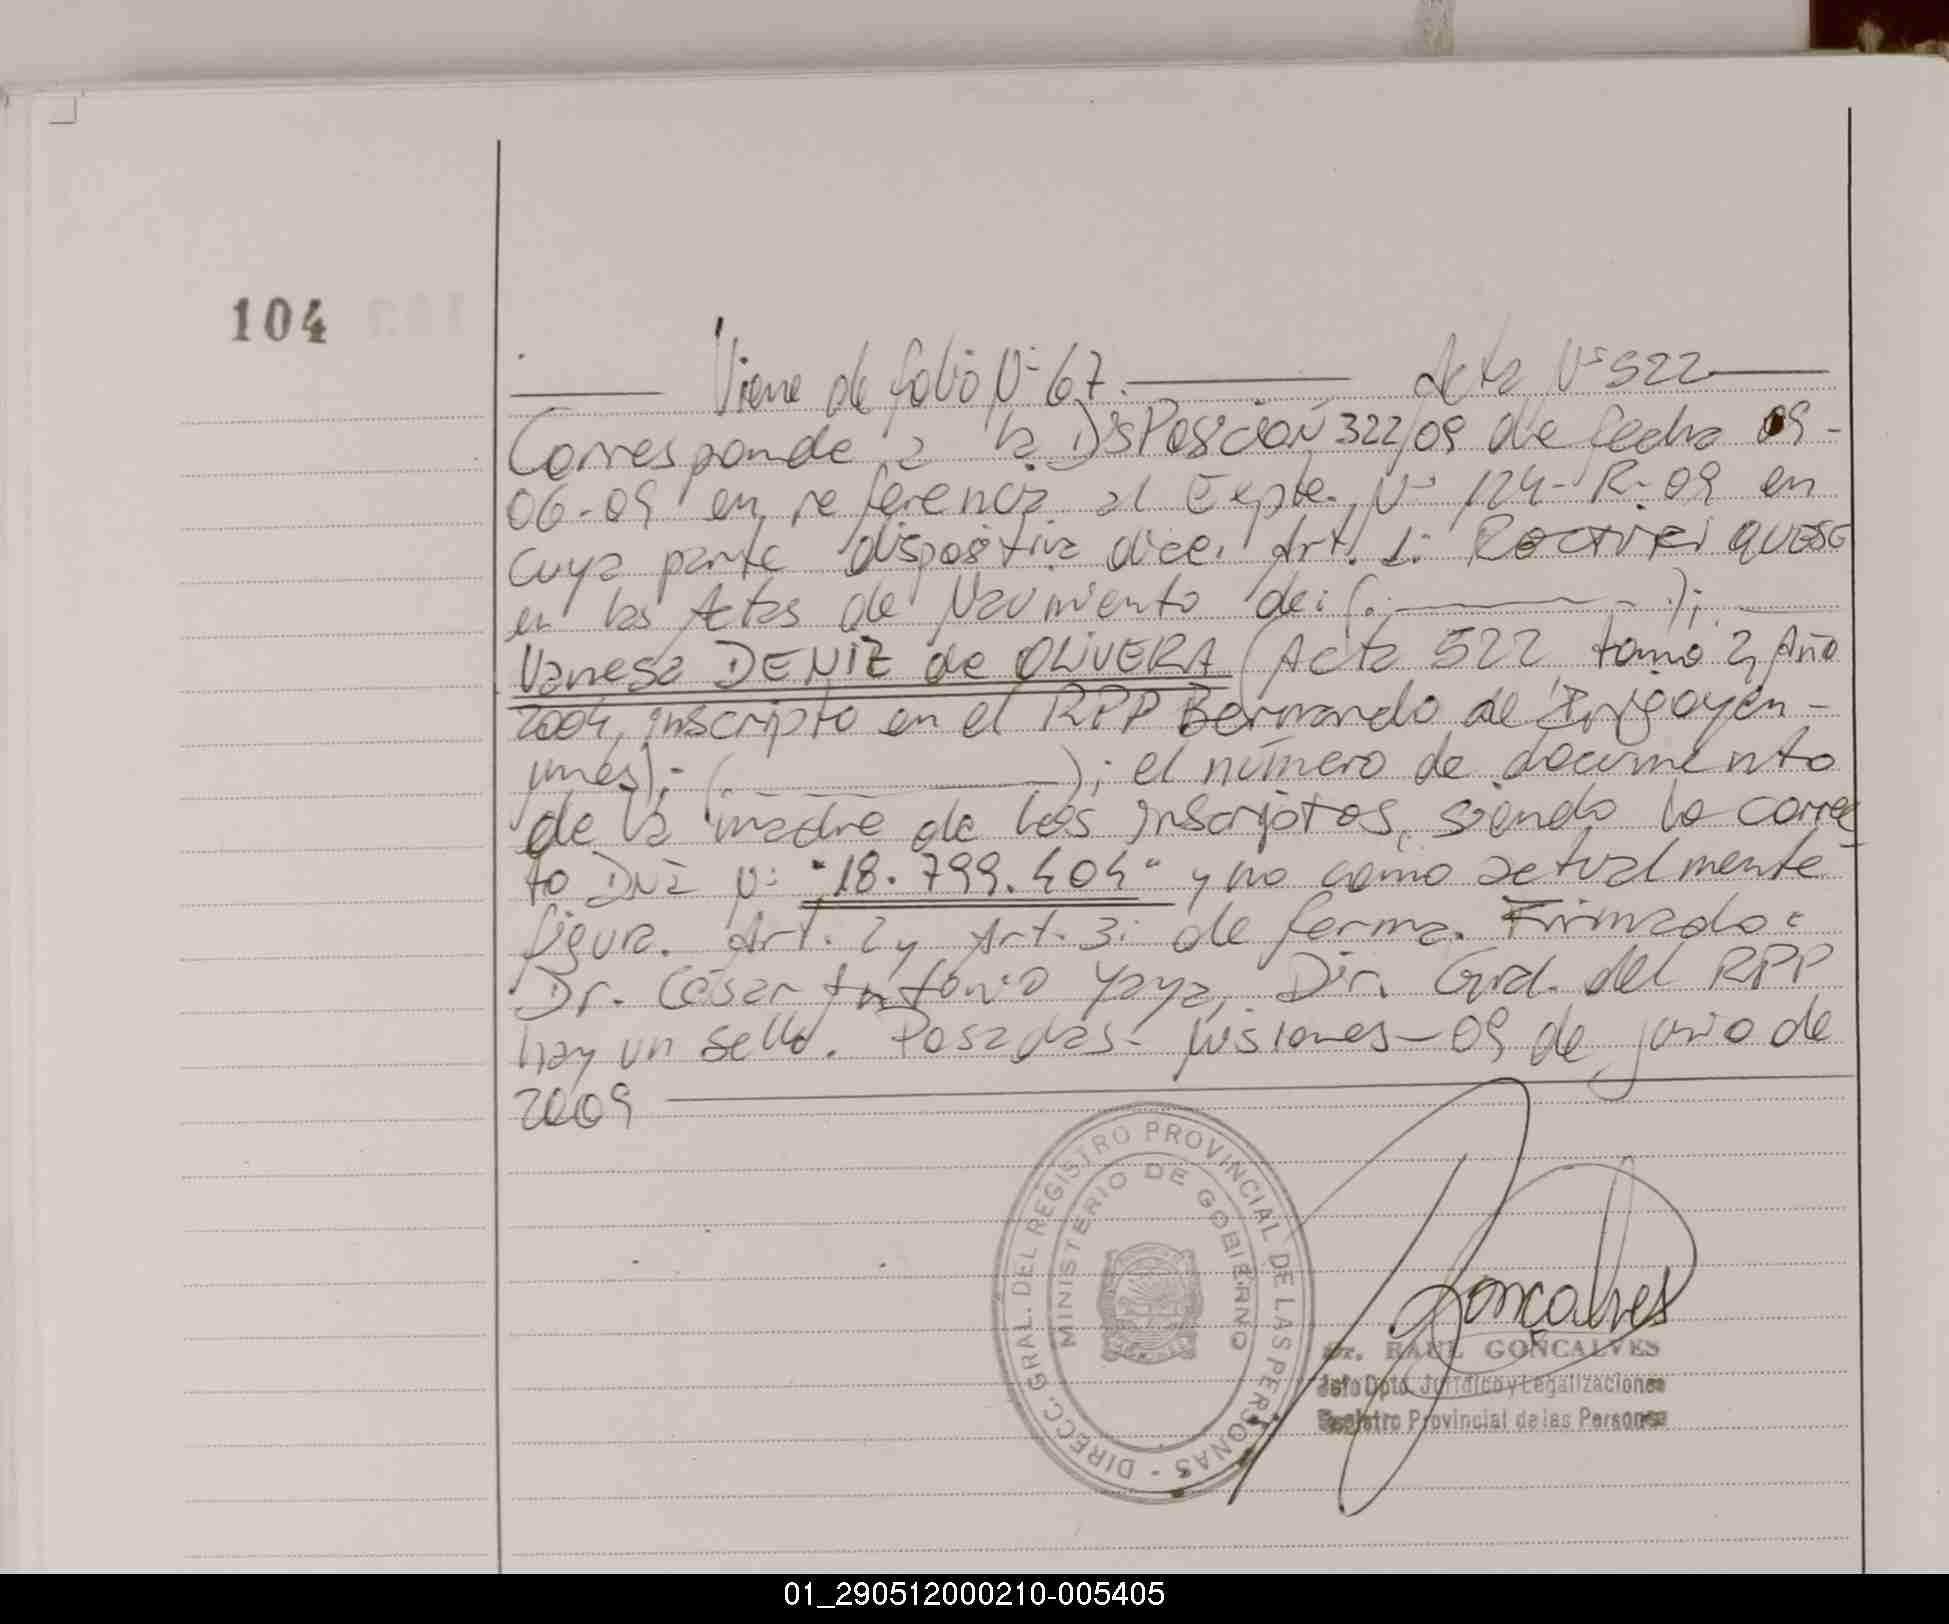 104
Viene de folio Nº 67. Acta Nº 522
Corresponde a la DISPOSICIÓN 322/09 de fecha 09-
06-09 en referencia al Expte. Nº 124-R-09 en
cuya parte dispositiva dice. Art. 1: QUESE
en las Actas de Nacimiento de: (. );
Vanesa DENIZ de OLIVERA (Acta 522, tomo 2, Año
2004, inscripto en el RPP Bernardo de Irigoyen-
); (. ); el número de documento
de la madre de los inscriptos, siendo lo correc
to DNI Nº "18.799.404" y no como actualmente
figura. Art. 2 y Art. 3: de forma. Firmado:
Dr. César Antonio Yaya, Dir. Gral. del RPP
hay un sello. Posadas- Misiones-09 de junio de
2009
DIRECC. GRAL. DEL REGISTRO PROVINCIAL DE LAS PERSONAS -
MINISTERIO DE GOBIERNO
Goncalves
Dr. RAUL GONCALVES
Jefe Dpto. Jurídico y Legalizaciones
Registro Provincial de las Personas
01_290512000210-005405